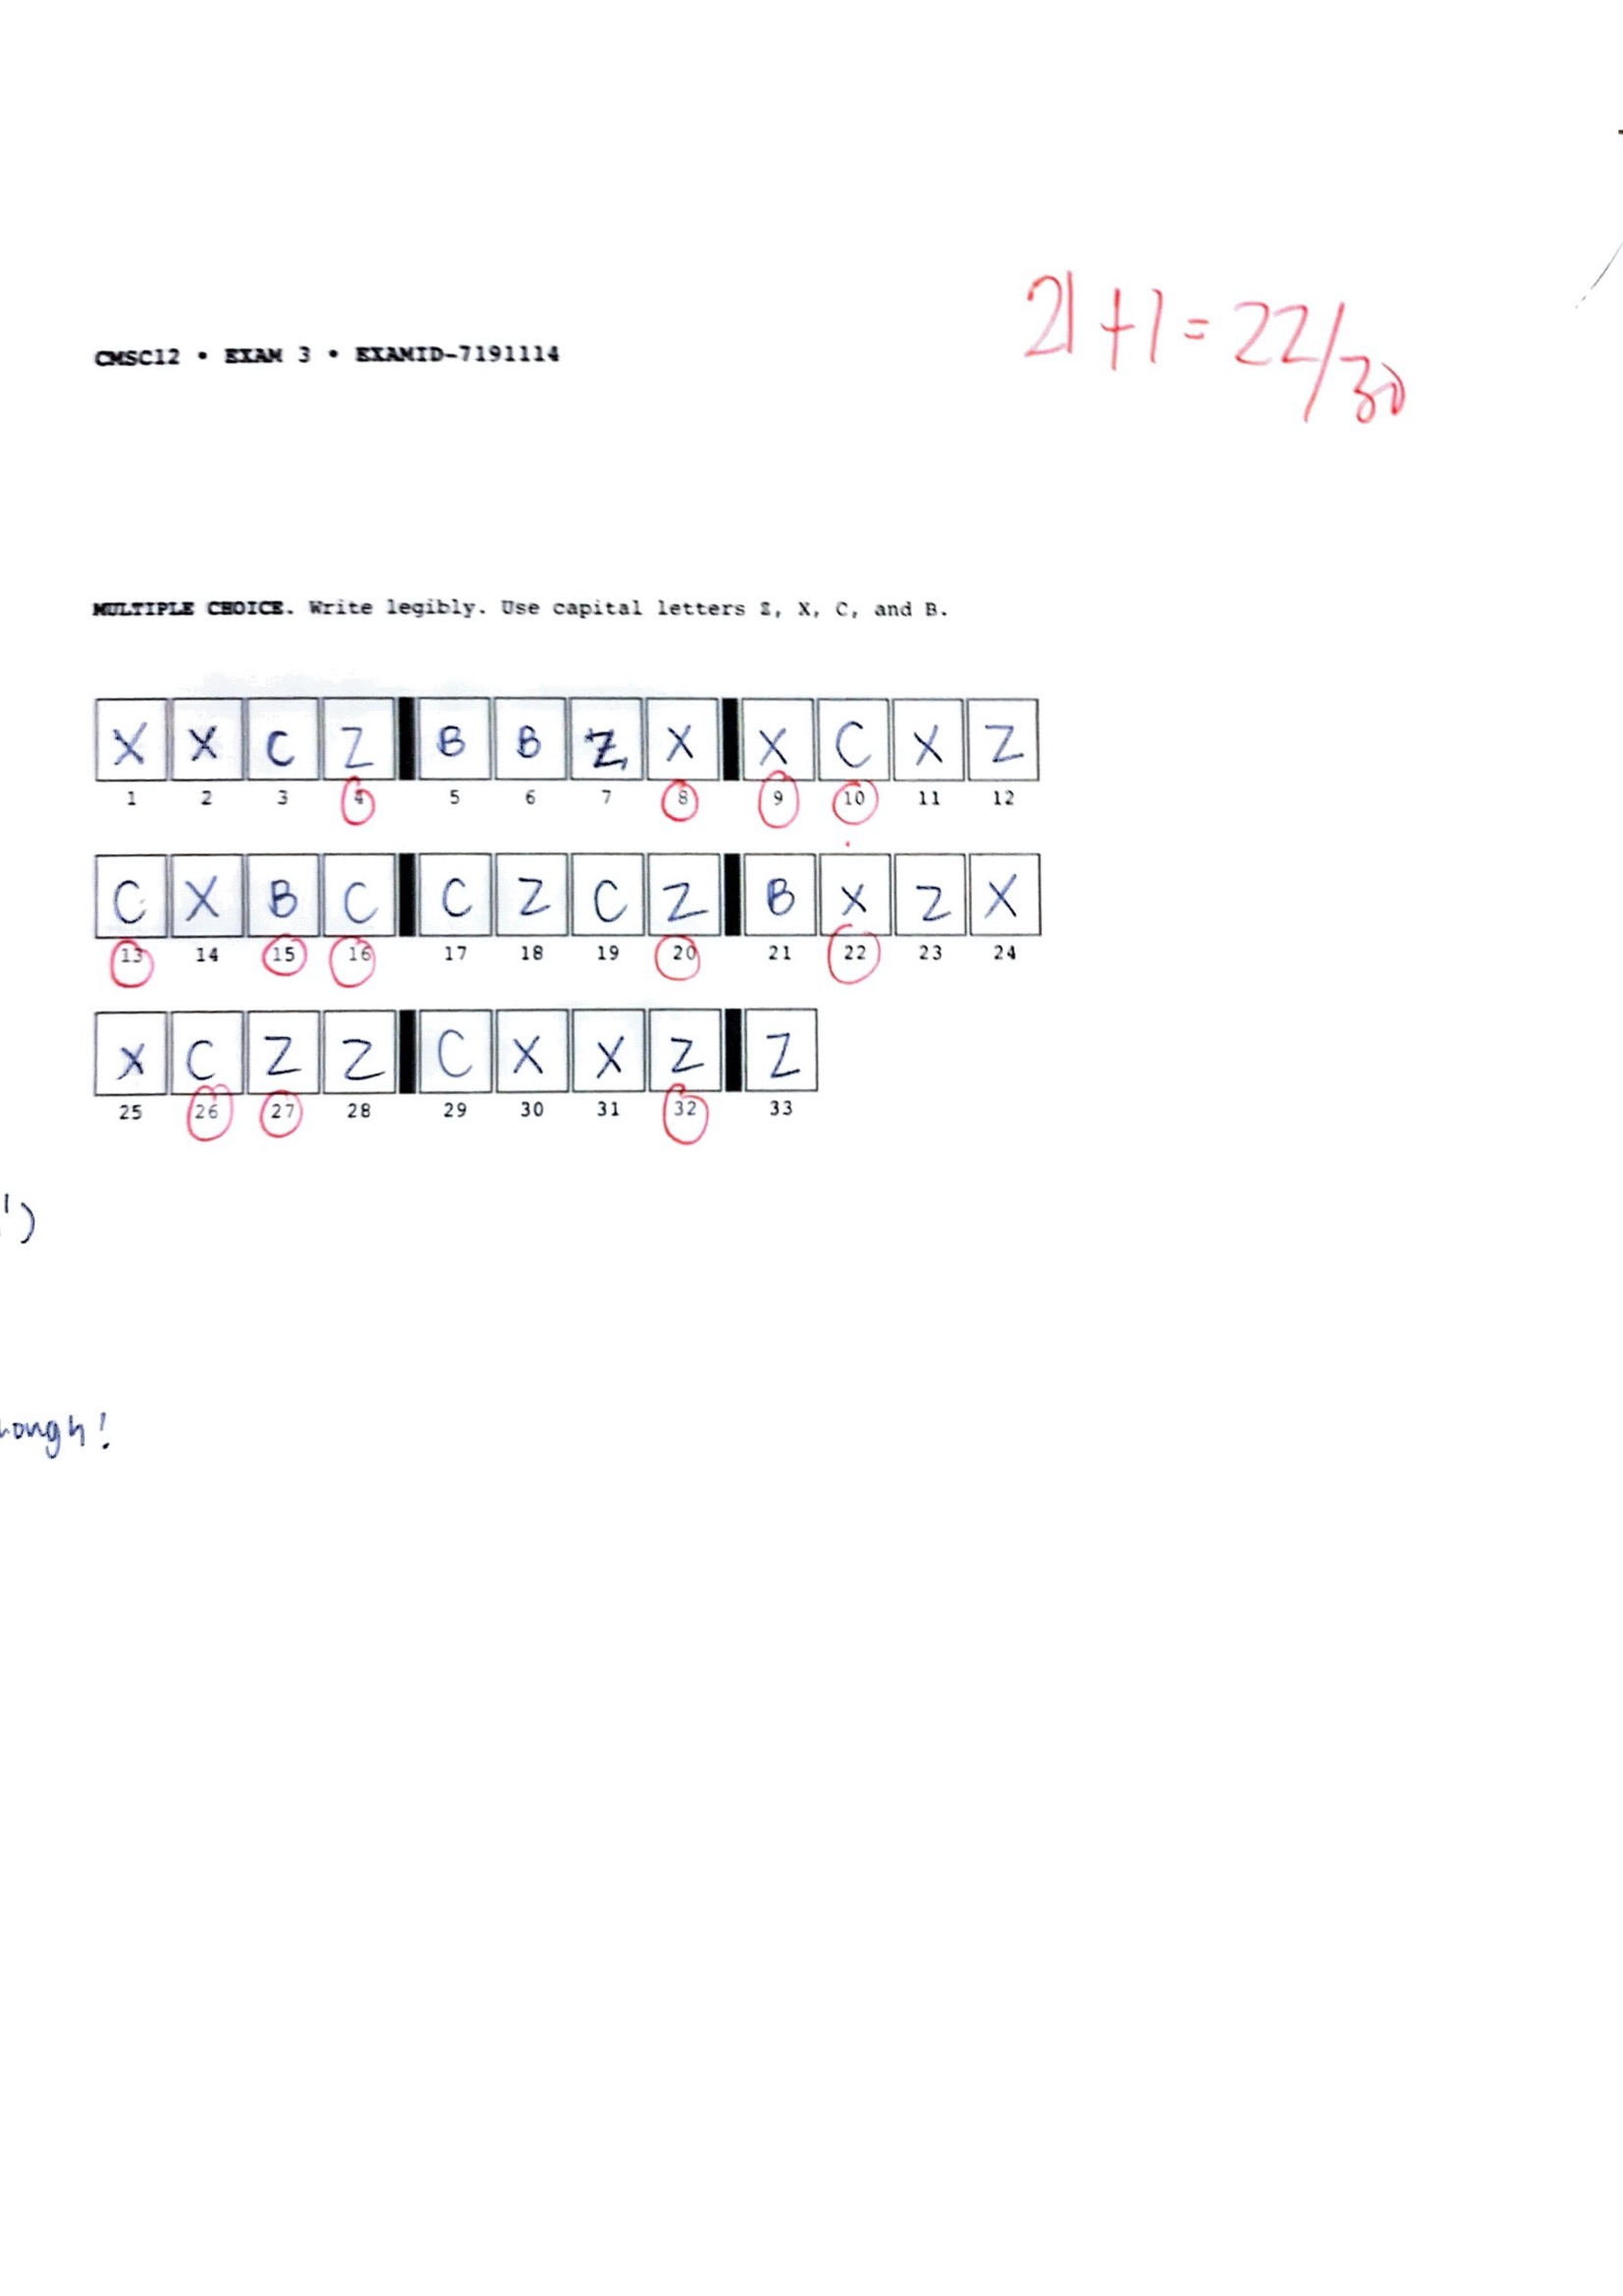 CMSC12 • EXAM 3 • EXAMID-7191114
21 + 1 = 22/30
MULTIPLE CHOICE. Write legibly. Use capital letters Z, X, C, and B.
X X C Z B B Z X X C X Z
1 2 3 4 5 6 7 8 9 10 11 12
C X B C C Z C Z B X Z X
13 14 15 16 17 18 19 20 21 22 23 24
X C Z Z C X X Z Z
25 26 27 28 29 30 31 32 33
')
hough!